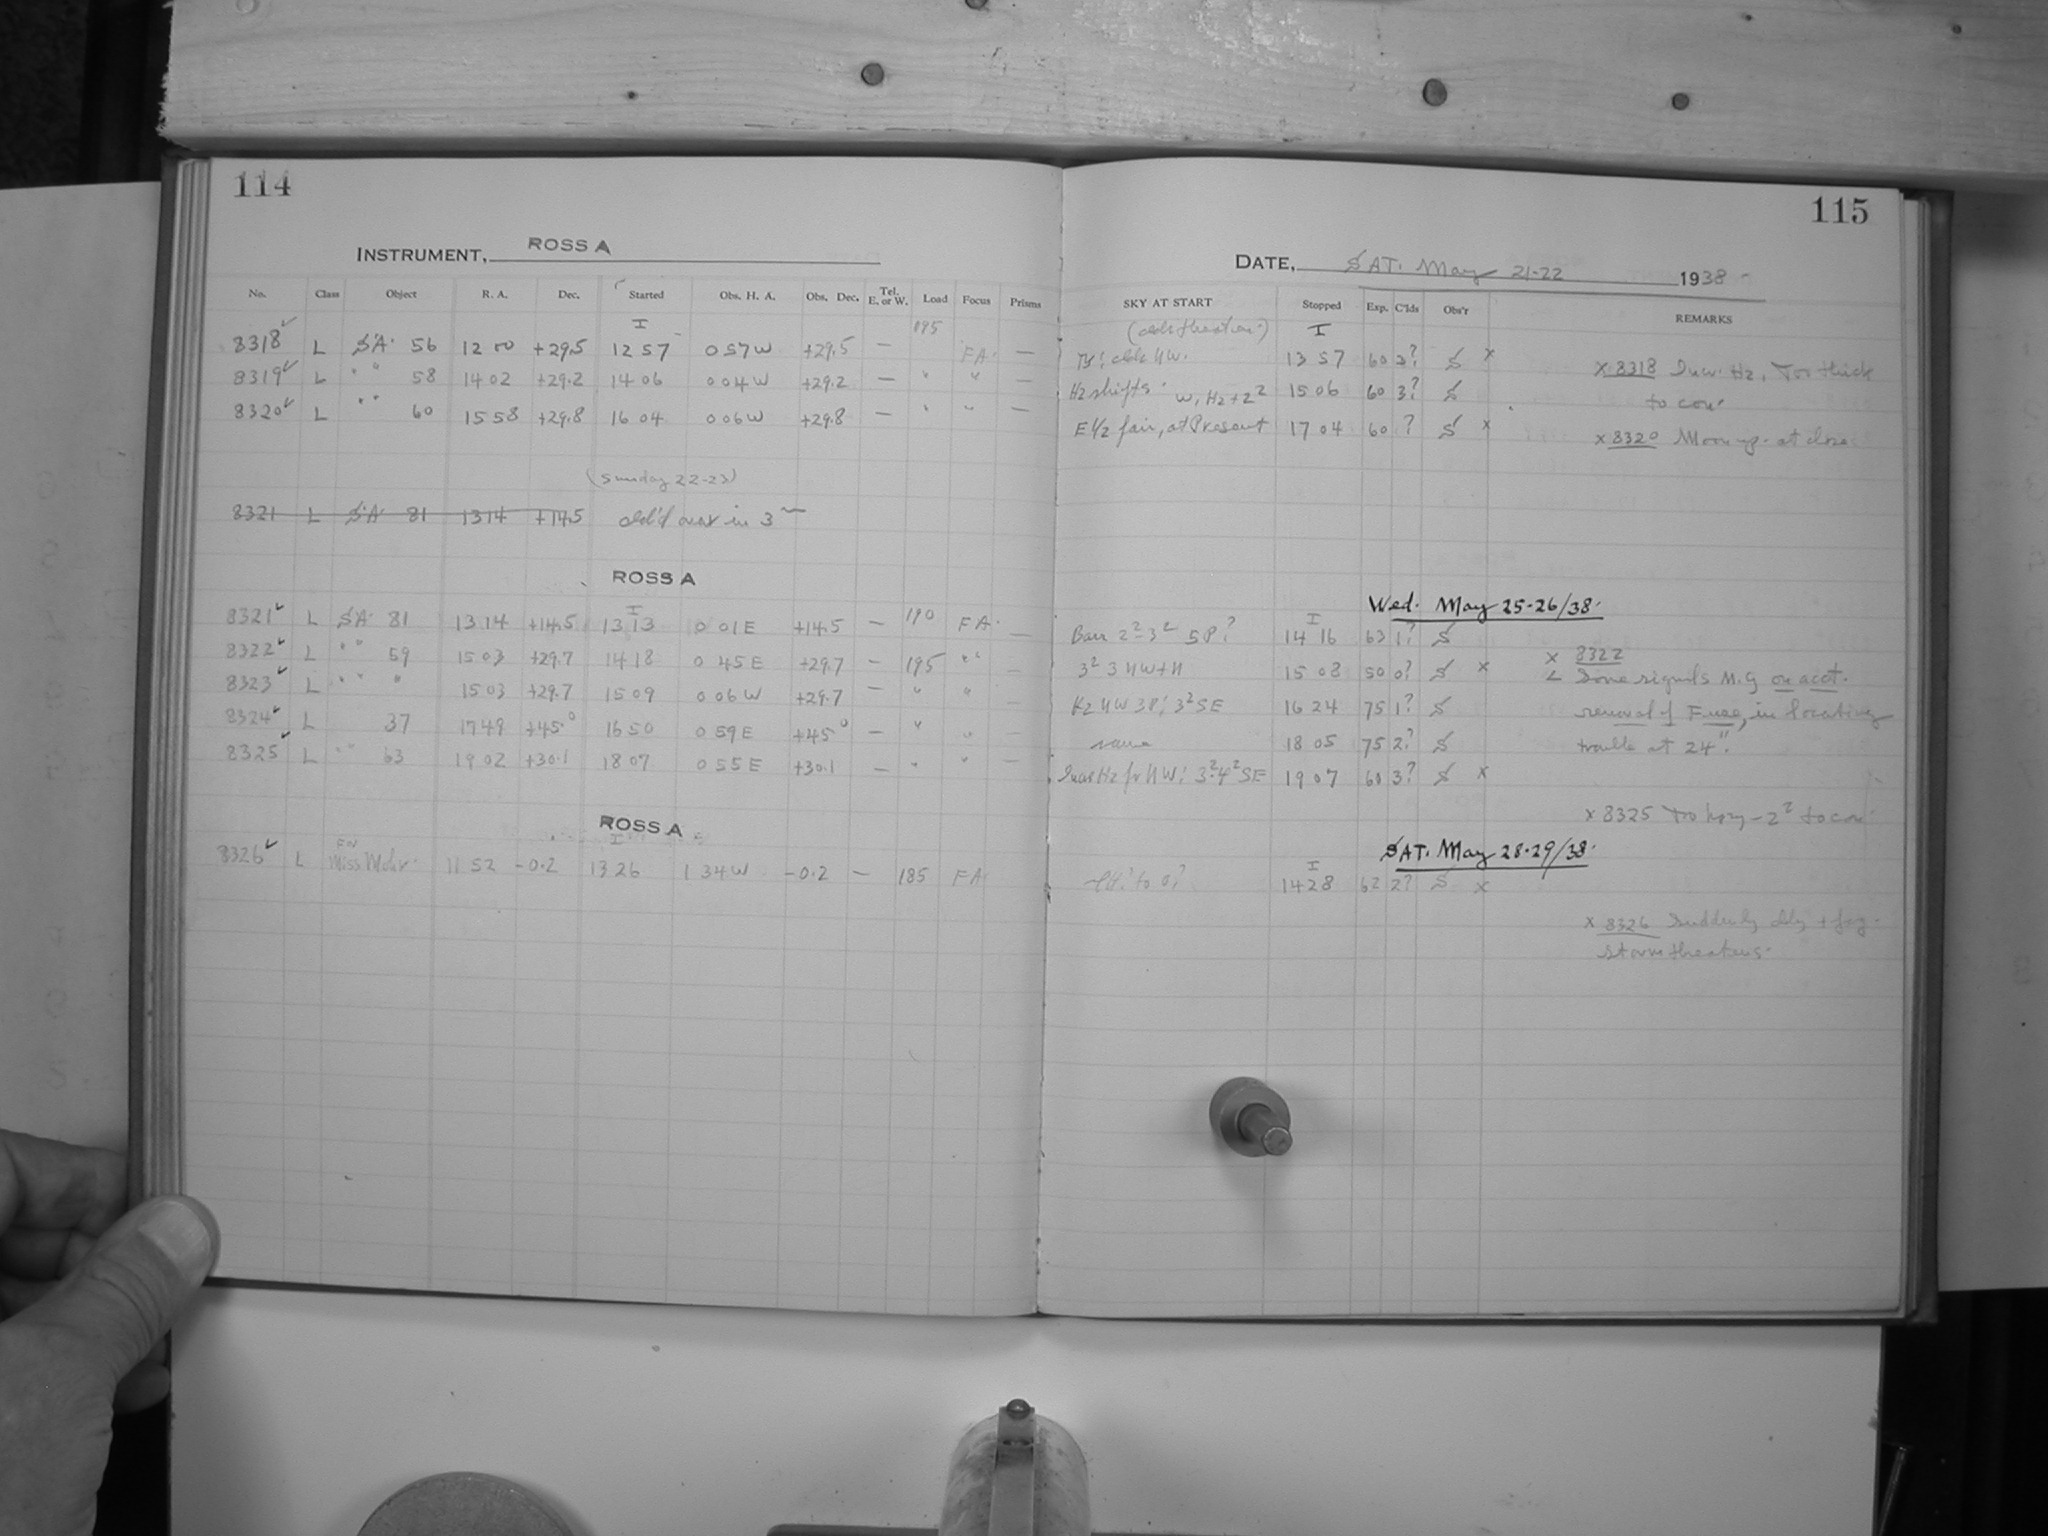 114
115
INSTRUMENT, ROSS A
DATE, SAT. May 21-22 1938
No. Class Object R. A. Dec. Started Obs. H. A. Obs. Dec. Tel. E. or W. Load Focus Prisms SKY AT START Stopped Exp. C'lds Obs'r REMARKS
I 195 I
8318 L SA. 56 12 00 +29.5 12 57 0 57 W +29.5 — FA. — NW. 13 57 60 3? S x x 8318 Hz, Too thick
8319 L " " 58 14 02 +29.2 14 06 0 04 W +29.2 — " " — Hz shifts. W, Hz + 2² 15 06 60 3? S to con.
8320 L " " 60 15 58 +29.8 16 04 0 06 W +29.8 — " " — E 1/2 fair, at Present 17 04 60 ? S x x 8320 Moon up - at close
(Sunday 22-23)
8321 L SA 81 13 14 +14.5 cld'd over in 3
ROSS A
Wed. May 25-26/38.
8321 L SA. 81 13 14 +14.5 I 13 13 0 01 E +14.5 — 190 FA. — 2²-3² 5P? I 14 16 63 1? S
8322 L " " 59 15 03 +29.7 14 18 0 45 E +29.7 — 195 " " — 3² 3 NW+N 15 08 50 0? S x x 8322
8323 L " " " 15 03 +29.7 15 09 0 06 W +29.7 — " " — Hz NW 3P! 3² SE 16 24 75 1? S Dome signals M.G on acct.
8324 L 37 17 49 +45° 16 50 0 59 E +45° — " " — same 18 05 75 2? S removal of Fuse, in locating
8325 L " " 63 19 02 +30.1 18 07 0 55 E +30.1 — " " — Hz fr NW! 3²-4² SE 19 07 60 3? S x trouble at 24".
x 8325 Too hazy - 2² to con.
ROSS A
SAT. May 28-29/38.
8326 L For Miss Mohr. 11 52 -0.2 I 13 26 1 34 W -0.2 — 185 FA I 14 28 62 2? S x
x 8326 Suddenly cldy + fog.
storm threatens.